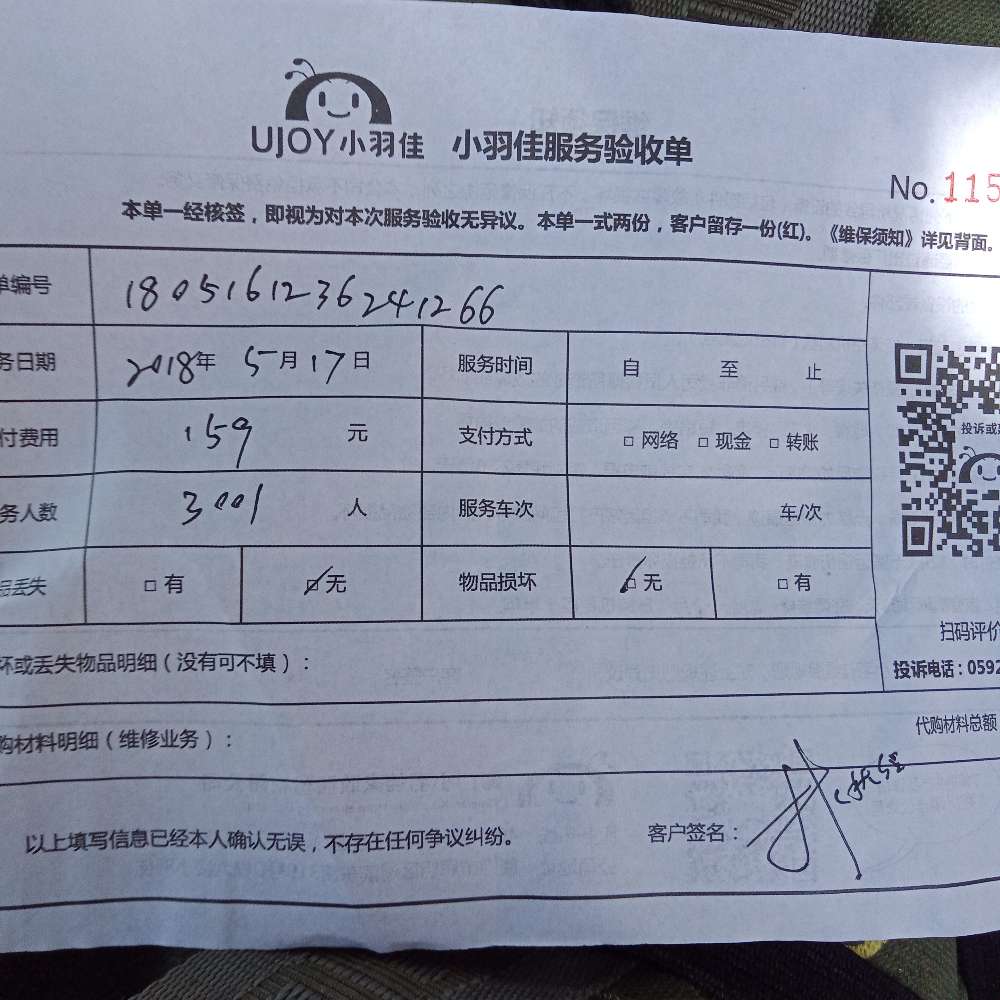 UJOY小羽佳 小羽佳服务验收单
No. 115
本单一经核签，即视为对本次服务验收无异议。本单一式两份，客户留存一份(红)。《维保须知》详见背面。
单编号 1805161236241266
务日期 2018年 5月17日 服务时间 自 至 止
付费用 159 元 支付方式 □ 网络 □ 现金 □ 转账
务人数 3001 人 服务车次 车/次
品丢失 □ 有 ☑ 无 物品损坏 ☑ 无 □ 有
投诉或
扫码评价
投诉电话：0592
坏或丢失物品明细（没有可不填）：
购材料明细（维修业务）：
代购材料总额
以上填写信息已经本人确认无误，不存在任何争议纠纷。 客户签名：